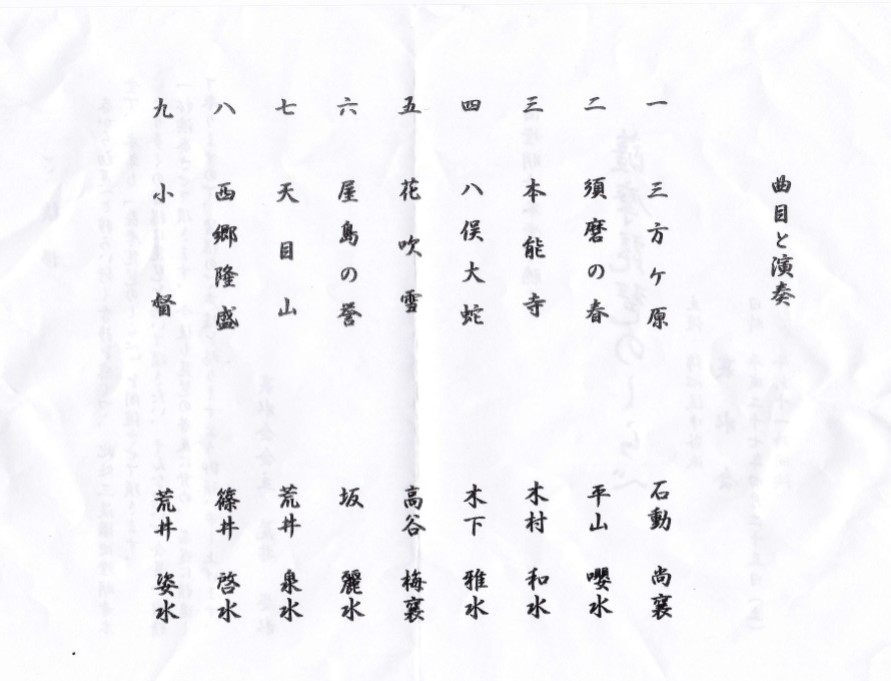 曲目と演奏
一 三方ケ原 石動 尚襄
二 須磨の春 平山 嚶水
三 本能寺 木村 和水
四 八俣大蛇 木下 雅水
五 花吹雪 高谷 梅襄
六 屋島の誉 坂 麗水
七 天目山 荒井 泉水
八 西郷隆盛 篠井 啓水
九 小督 荒井 姿水